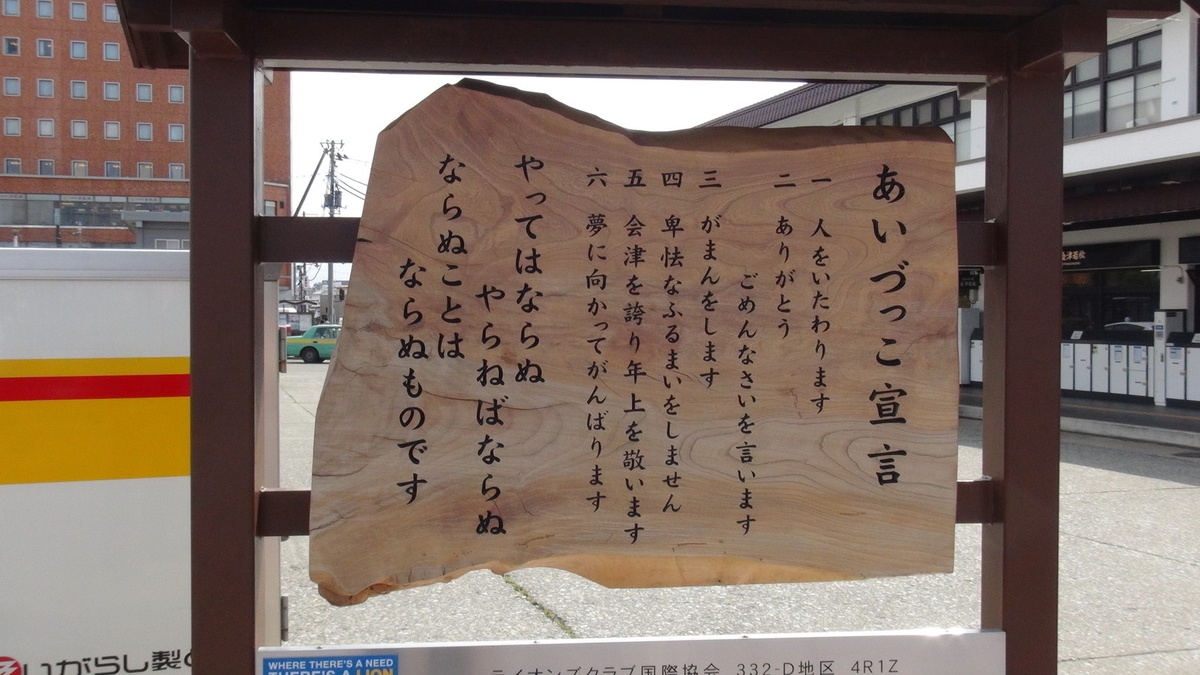 あいづっこ宣言
一 人をいたわります
二 ありがとう
ごめんなさいを言います
三 がまんをします
四 卑怯なふるまいをしません
五 会津を誇り年上を敬います
六 夢に向かってがんばります
やってはならぬ
やらねばならぬ
ならぬことは
ならぬものです
いがらし製
WHERE THERE'S A NEED
THERE'S A LION
ライオンズクラブ国際協会 332-D地区 4R1Z